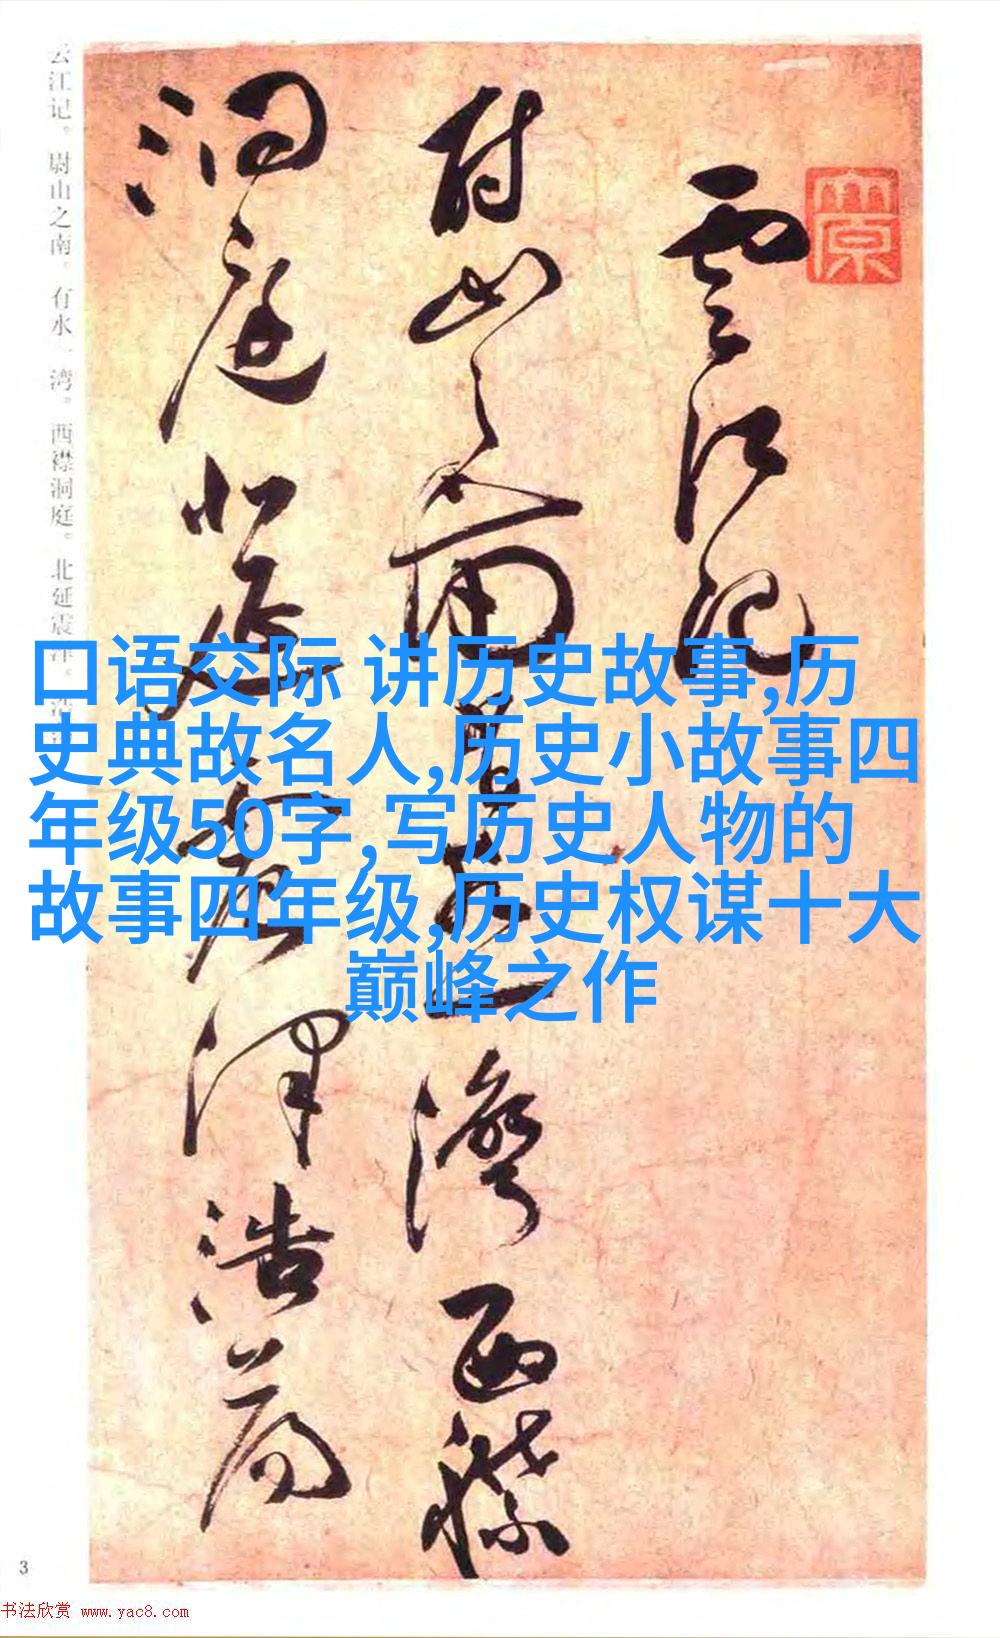 雲江记
尉山之南有水一湾西襟
洞庭北延震泽浩荡
云江记。尉山之南。有水一湾。西襟洞庭。北延震泽。浩
口语交际 讲历史故事,历
史典故名人,历史小故事四
年级50字,写历史人物的
故事四年级,历史权谋十大
巅峰之作
3
书法欣赏 www.yac8.com